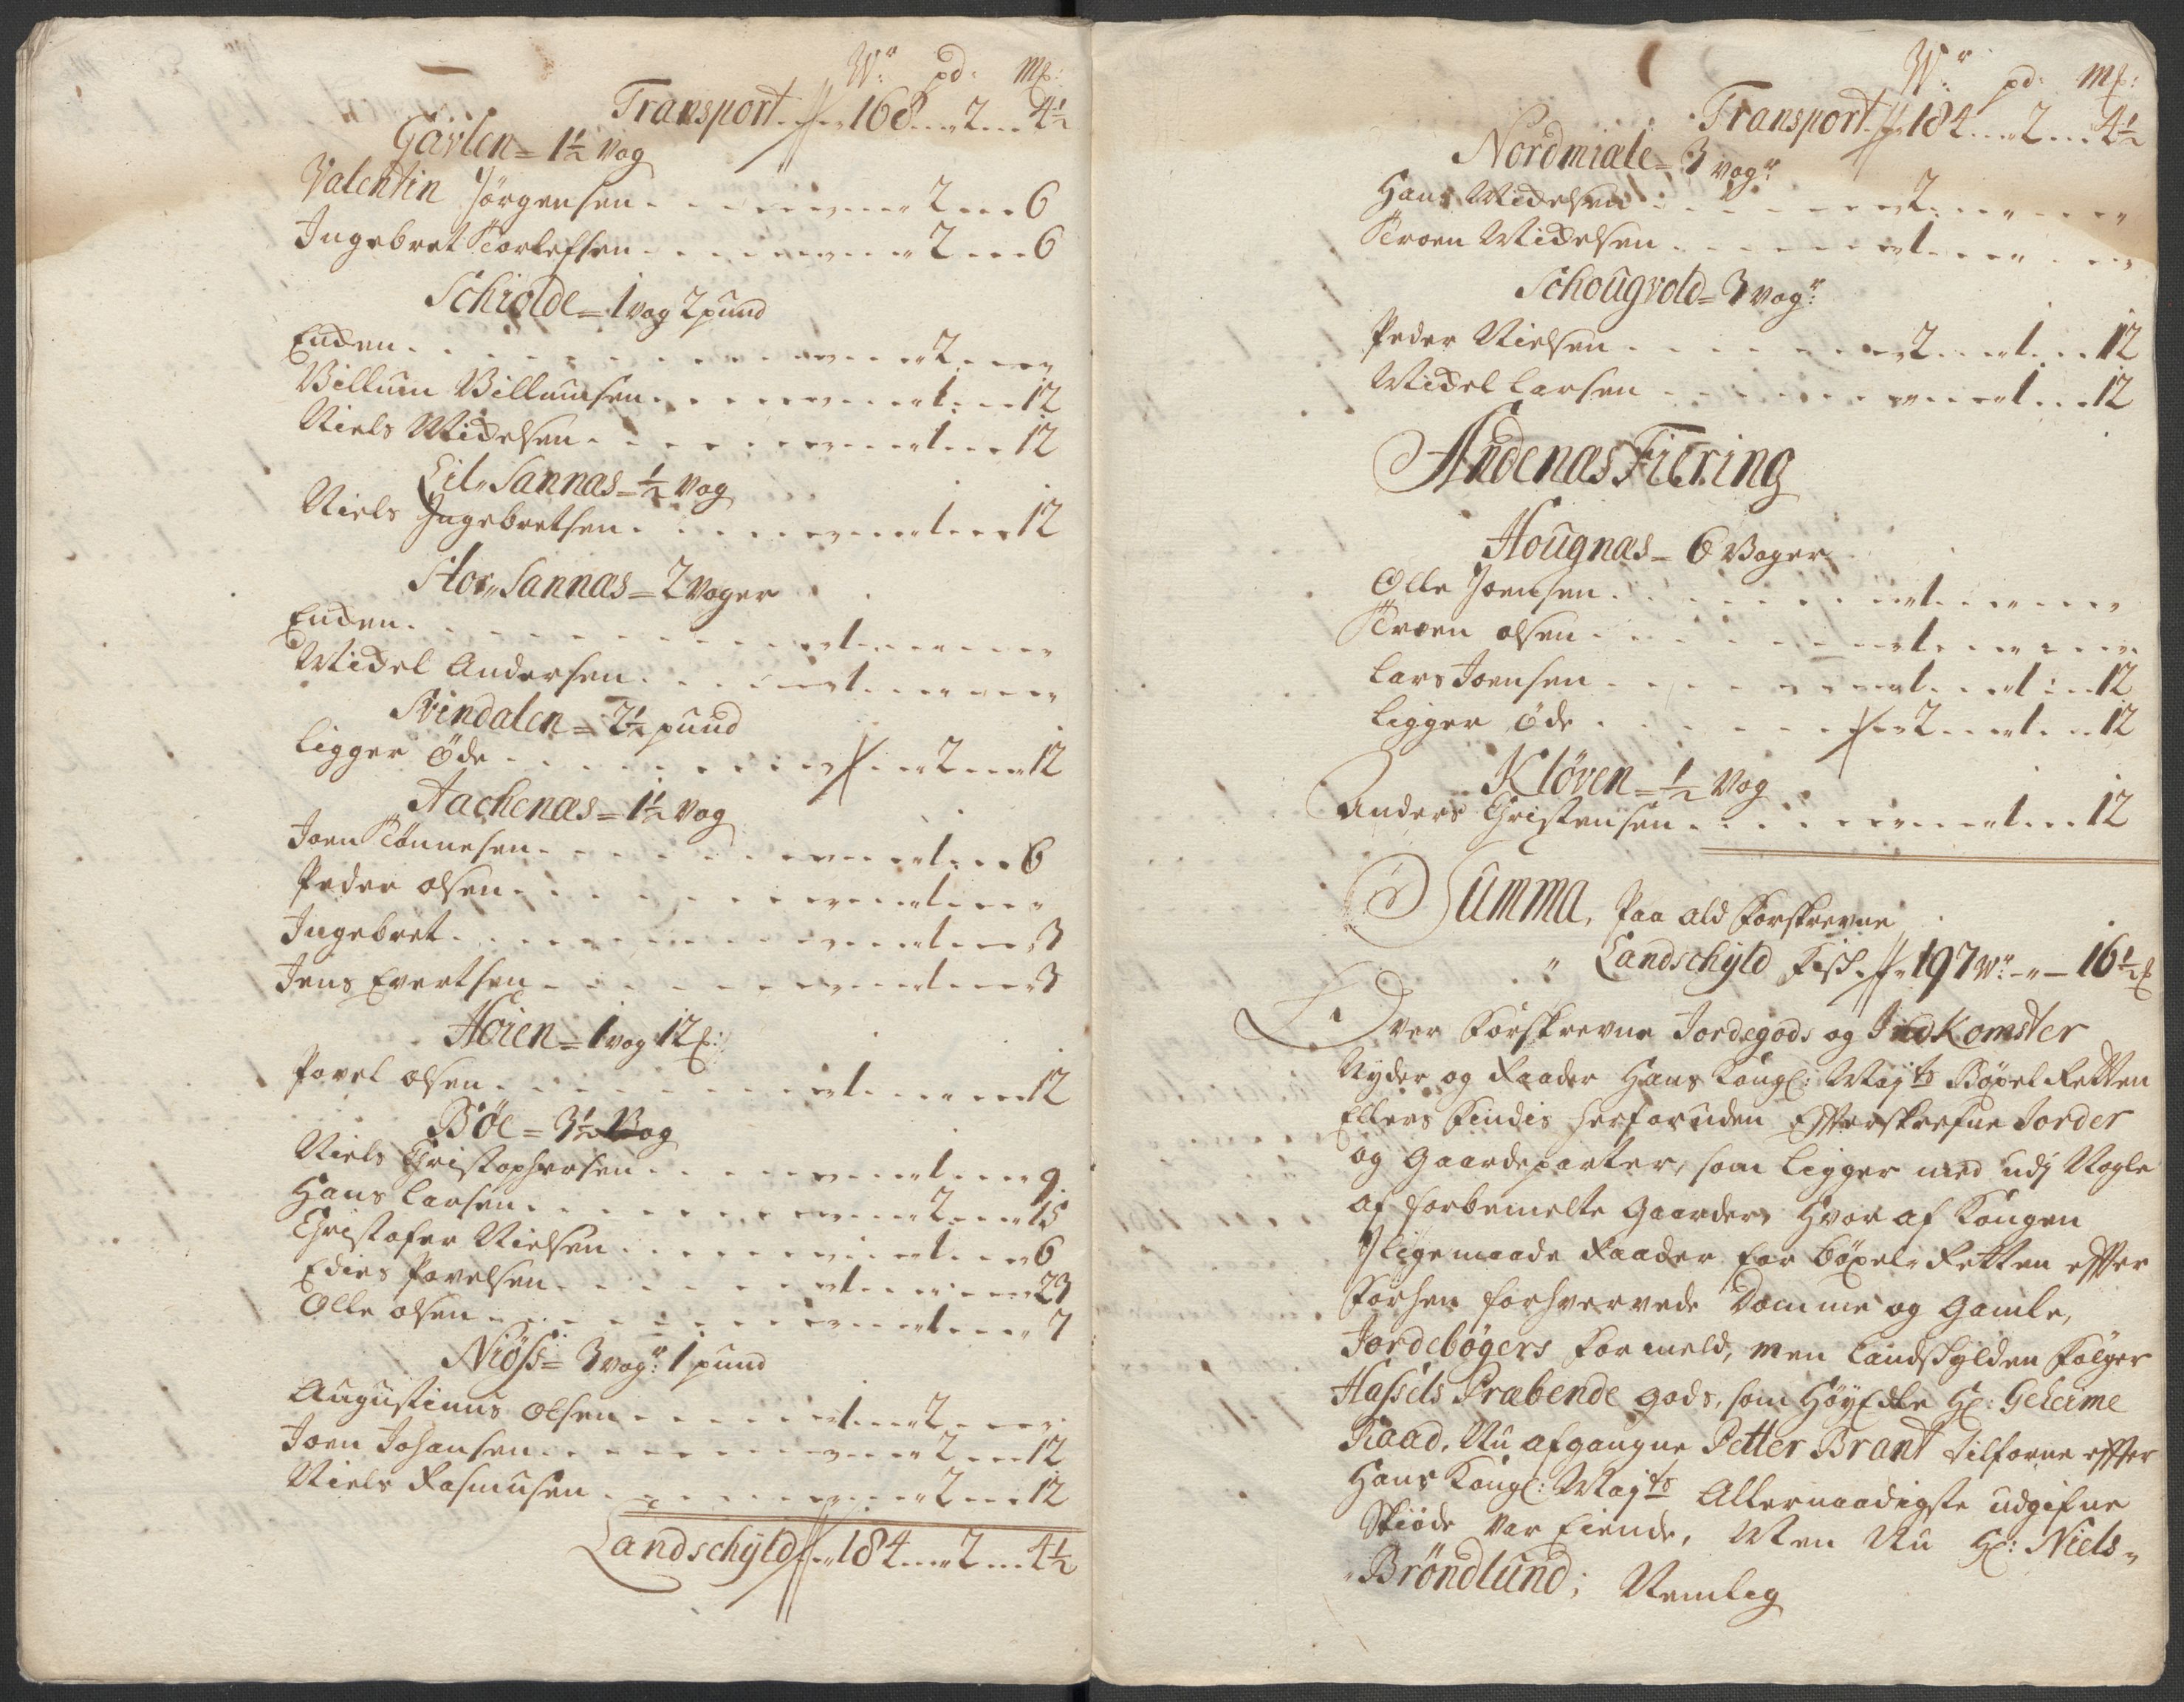 Wr: pd: Mk:
Transport .. 168 .. 2 .. 4½
Gävlen = 1½ Vog
Valentin Jörgensen . . . 2 . . . 6
Ingebret Torlefsen . . . 2 . . . 6
Schiolde = 1 vog 2 pund
Encken . . . 2 . . . "
Villum Villumsen . . . 1 . . . 12
Niels Mickelsen . . . 1 . . . 12
Lil- Sannæs = ½ Vog
Niels Ingebretsen . . . 1 . . . 12
Stor- Sannæs = 2 Voger
Encken . . . 1 . . . " . . . "
Mickel Andersen . . . 1 . . . " . . . "
Svindalen = 2½ pund
Ligger öde . . . 2 . . . 12
Aachenæs = 1½ Vog
Joen Tönnesen . . . 1 . . . 6
Peder Olsen . . . 1 . . . "
Ingebret . . . 1 . . . 3
Jens Evertsen . . . 1 . . . 3
Höien = 1 vog 12 :
Povel Olsen . . . 1 . . . " . . . 12
Böe = 3½ Vog
Niels Christophersen . . . 1 . . . 9
Hans Larsen . . . 2 . . . 15
Christofer Nielsen . . . 1 . . . 6
Edies Povelsen . . . 1 . . . " . . . 23
Olle Olsen . . . 1 . . . 7
Niöss = 3 vogr: 1 pund
Augustinus Olsen . . . 1 . . . 2 . . . "
Joen Johansen . . . 2 . . . 12
Niels Rasmusen . . . 2 . . . 12
Landschyld .. 184 .. 2 .. 4½
Wr: pd: Mk:
Transport .. 184 .. 2 .. 4½
Nordmiele = 3 vogr:
Hans Mickelsen . . . 2 . . . " . . . "
Troen Mickelsen . . . 1 . . . " . . . "
Schougvold = 3 vogr:
Peder Nielsen . . . 2 . . . 1 . . . 12
Mickel Larsen . . . 1 . . . 12
Andenæs Fiering
Hougnæs = 6 Voger
Olle Joensen . . . 1 . . . " . . . "
Troen Olsen . . . 1 . . . " . . . "
Lars Joensen . . . 1 . . . 1 . . . 12
Ligger öde . . . 2 . . . 1 . . . 12
Klöven = ½ Vog
Anders Christensen . . . 1 . . . 12
Summa, Paa ald forskrevne
Landschyld Fisk .. 197 Wr: - " - 16½
Over forskrevne Jordegods og Indkomster
Nyder og Raader Hans Kongl: Mayts Böxel Retten
Ellers findis herforuden Efterskrefne Jorder
og Gaardeparter, som ligger med udj Nogle
af forbemelte Gaarder, Hvor af Kongen
Jligemaade Raader for böxel- Retten efter
forhen forhvervede Domme og Gamle,
Jordebögers formeld, men Landskylden fölger
Hassels Præbende gods, som HöyEdle Hr: Geheime
Raad, Nu afgangne Petter Brant tilforne efter
Hans Kongl: Mayts Allernaadigste udgifne
Skiöde var Eiende, Men Nu Hr: Niels
Bröndlund; Nemlig